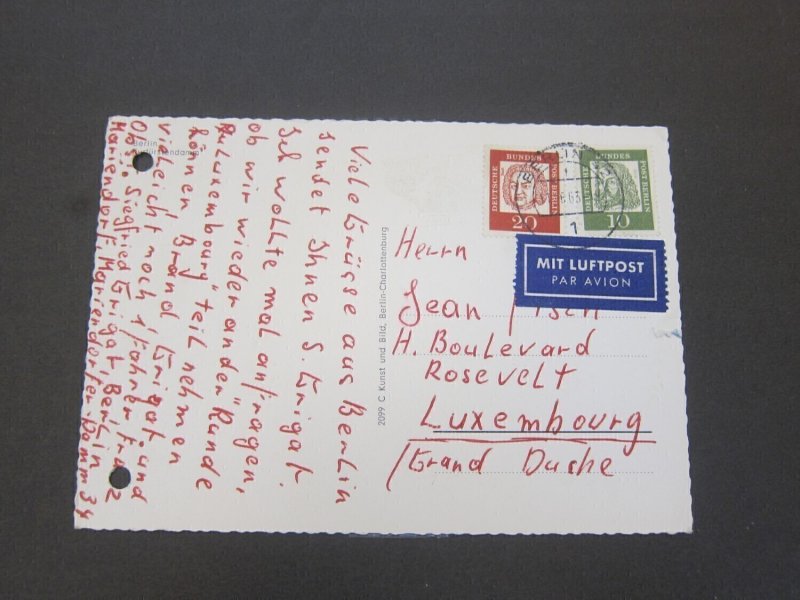 Viele Grüsse aus Berlin
sendet Ihnen S. Grigat.
Ich wollte mal anfragen,
ob wir wieder an der „Runde
Luxembourg" teil nehmen
können Brand, Grigat und
vielleicht noch 1 Fahrer Franz
Siegfried Grigat, Berlin
Mariendorf Mariendorfer-Damm 34
Berlin
2099 C Kunst und Bild, Berlin-Charlottenburg
DEUTSCHE BUNDES POST BERLIN
20
DEUTSCHE BUNDES POST BERLIN
10
BERLIN
1
MIT LUFTPOST
PAR AVION
Herrn
Jean
H. Boulevard
Rosevelt
Luxembourg
/Grand Duche